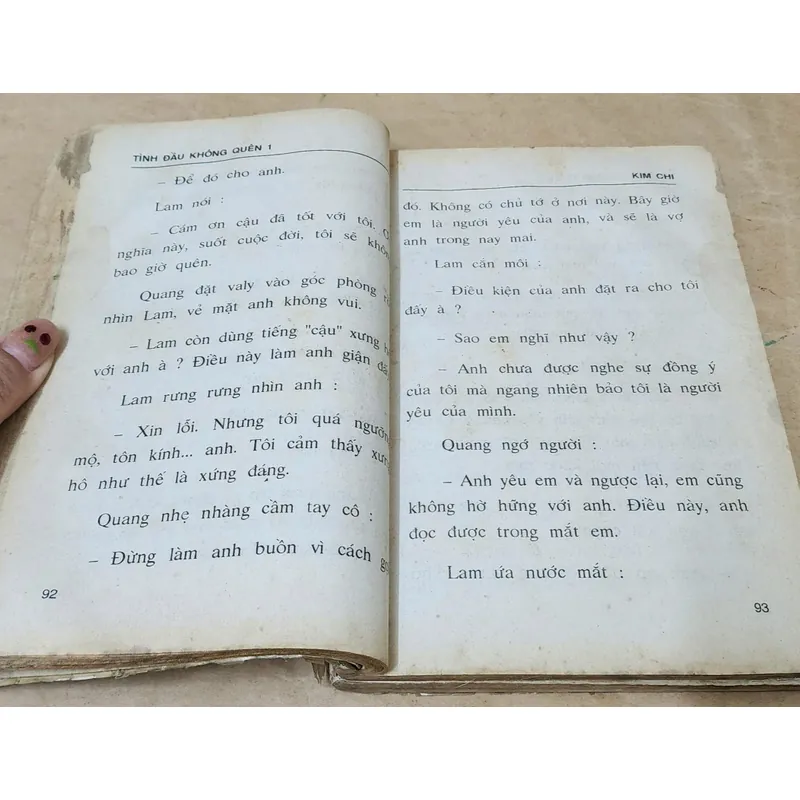 TÌNH ĐẦU KHÔNG QUÊN 1
– Để đó cho anh.
Lam nói :
– Cám ơn cậu đã tốt với tôi.
nghĩa này, suốt cuộc đời, tôi sẽ không
bao giờ quên.
Quang đặt valy vào góc phòng
nhìn Lam, vẻ mặt anh không vui.
– Lam còn dùng tiếng "cậu" xưng
với anh à ? Điều này làm anh giận
Lam rưng rưng nhìn anh :
– Xin lỗi. Nhưng tôi quá ngưỡng
mộ, tôn kính... anh. Tôi cảm thấy xưng
hô như thế là xứng đáng.
Quang nhẹ nhàng cầm tay cô :
– Đừng làm anh buồn vì cách
92
KIM CHI
đó. Không có chủ tớ ở nơi này. Bây giờ
em là người yêu của anh, và sẽ là vợ
anh trong nay mai.
Lam cắn môi :
– Điều kiện của anh đặt ra cho tôi
đấy à ?
– Sao em nghĩ như vậy ?
– Anh chưa được nghe sự đồng ý
của tôi mà ngang nhiên bảo tôi là người
yêu của mình.
Quang ngớ người :
– Anh yêu em và ngược lại, em cũng
không hờ hững với anh. Điều này, anh
đọc được trong mắt em.
Lam ứa nước mắt :
93